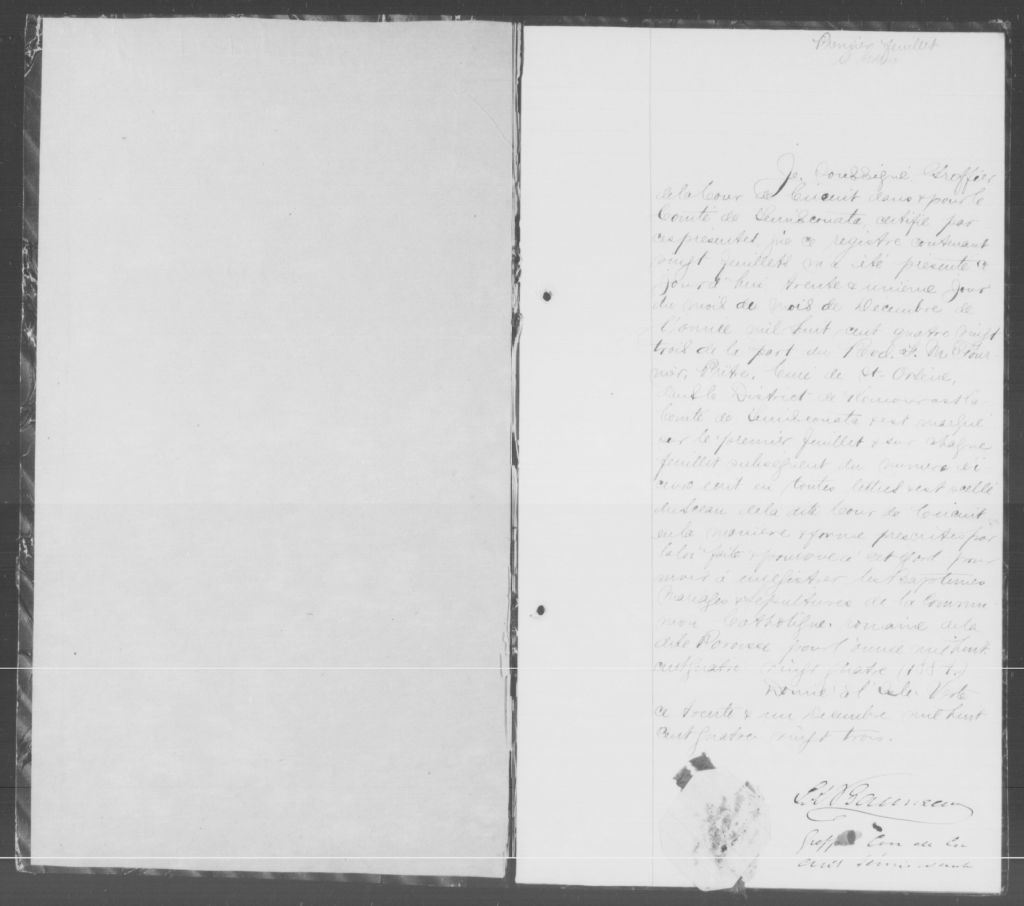 Premier feuillet
Je, soussigné Greffier
de la Cour de Circuit dans & pour le
Comté de Témiscouata, certifie par
ces présentes que ce registre contenant
vingt feuillets m'a été présenté a
jourd'hui trente & unieme jour
du mois de mois de Décembre de
l'année mil huit cent quatre vingt
trois de la part du Revd.
Ptre. Curé de St-
dans le District de Kamouraska
Comté de Témiscouata & est marqué
sur le premier feuillet & sur chaque
feuillet subséquent du numéro d'i
celui écrit en toutes lettres & est scellé
du Sceau de la dite Cour de Circuit
en la manière & forme prescrites par
la loi faite & pourvue à cet effet pour
servir à enregistrer les Baptêmes
Mariages & Sépultures de la Commu-
nion Catholique romaine de la
dite Paroisse pour l'année mil huit
cent quatre vingt quatre (1884)
Donné à l'Isle Verte
ce trente & un Décembre mil huit
cent quatre vingt trois.
Greffier